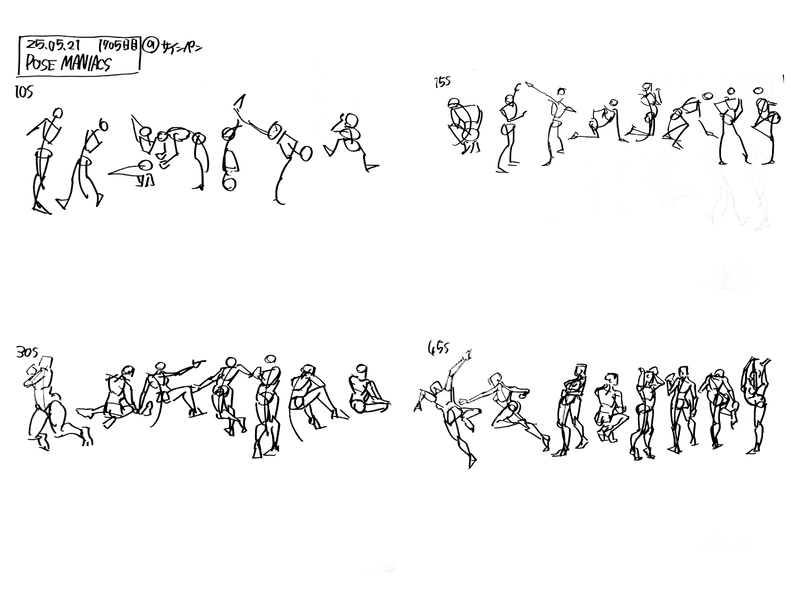 25.05.21 1705日目 ⑨ サインペン
POSE MANIACS
10S
15S
30S
45S